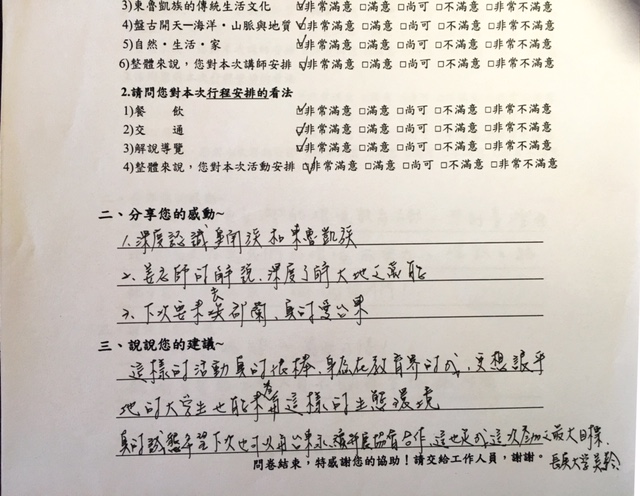 3)東魯凱族的傳統生活文化 ☑非常滿意 □滿意 □尚可 □不滿意 □非常不滿意
4)盤古開天—海洋・山脈與地質 ☑非常滿意 □滿意 □尚可 □不滿意 □非常不滿意
5)自然・生活・家 ☑非常滿意 □滿意 □尚可 □不滿意 □非常不滿意
6)整體來說，您對本次講師安排 ☑非常滿意 □滿意 □尚可 □不滿意 □非常不滿意
2.請問您對本次行程安排的看法
1)餐 飲 ☑非常滿意 □滿意 □尚可 □不滿意 □非常不滿意
2)交 通 ☑非常滿意 □滿意 □尚可 □不滿意 □非常不滿意
3)解說導覽 ☑非常滿意 □滿意 □尚可 □不滿意 □非常不滿意
4)整體來說，您對本次活動安排 ☑非常滿意 □滿意 □尚可 □不滿意 □非常不滿意
二、分享您的感動~
1.深度認識 族和東魯凱族
2.姜老師的解說，深度了解大地之
3.下次要來去都蘭，真的愛台東
三、說說您的建議~
這樣的活動真的很棒，身存在教育界的我，更想讓平
地的大學生也能來有這樣的生態環境
真的誠懇希望下次也可以再台東永續發展協會合作，這也是我這次參加之最大目標
問卷結束，特感謝您的協助！請交給工作人員，謝謝。 長庚大學 吳